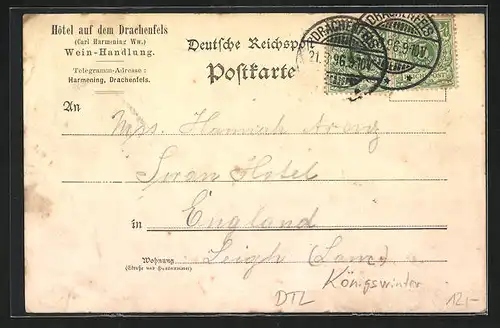 Hôtel auf dem Drachenfels
(Carl Harmening Ww.)
Wein-Handlung.
Telegramm-Adresse:
Harmening, Drachenfels.
Deutsche Reichspost
Postkarte
DRACHENFELS
96.9-10V.
DRACHENFELS
96.9-10V.
An
Mrs. Hannah
Swan Hotel
in England
Wohnung
(Straße und Hausnummer)
Leigh (Lanc.
Königswinter
DTL
12,-